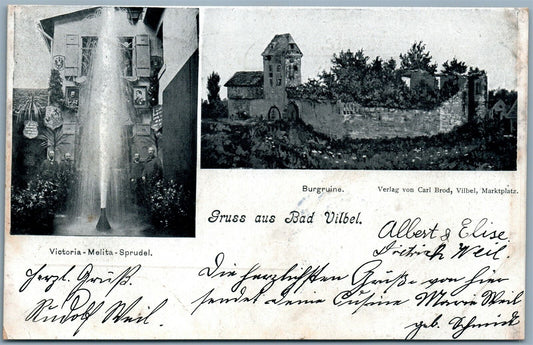 Burgruine.
Verlag von Carl Brod, Vilbel, Marktplatz.
Gruss aus Bad Vilbel.
Victoria-Melita-Sprudel.
Albert & Elise
Dietrich Weil.
Herzl. Grüß
Rudolf Weil.
Die herzlichsten Grüße von hier
sendet deine Cusine Marie Weil
geb. Schmidt